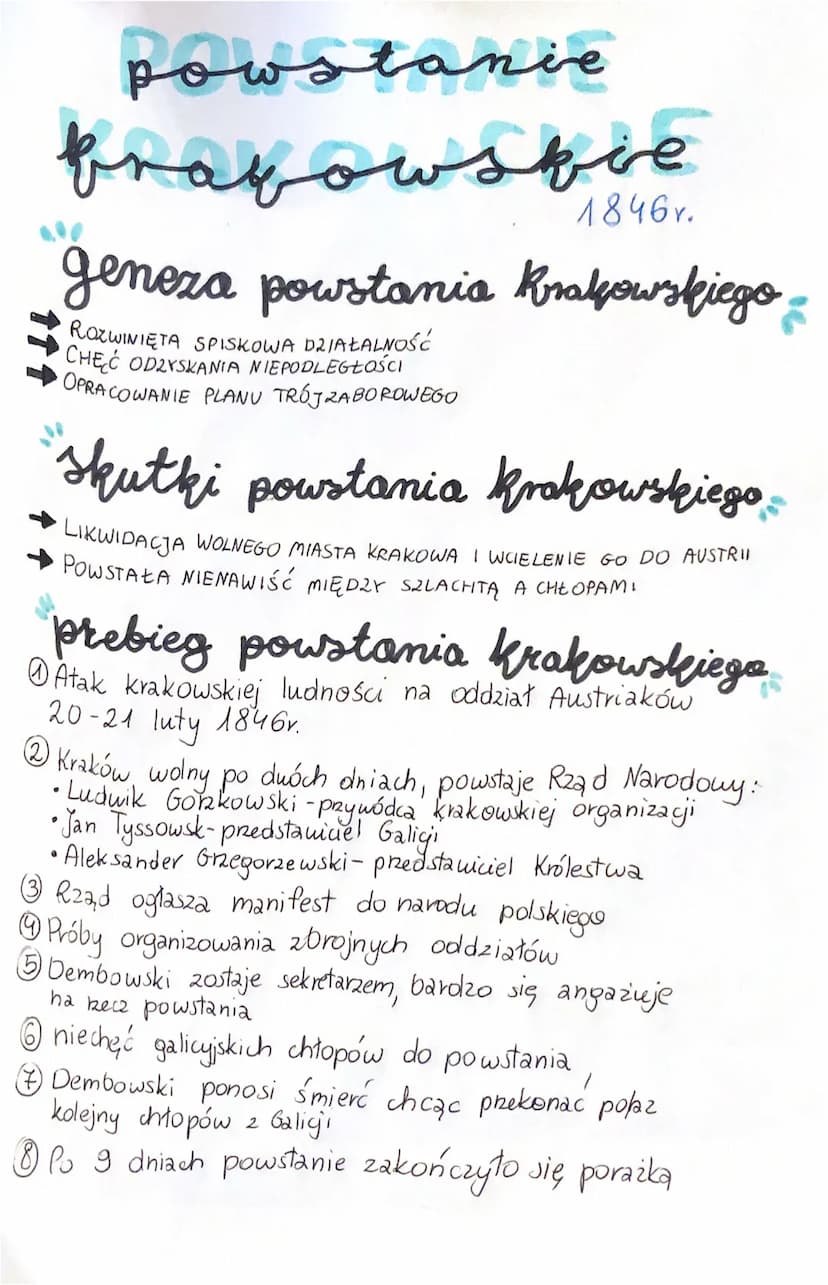 powstanie
krakowskie
1846r.
geneza powstania krakowskiego
ROZWINIĘTA SPISKOWA DZIAŁALNOŚĆ
CHĘĆ ODZYSKANIA NIEPODLEGŁOŚCI
OPRACOWANIE PLANU TRÓJZABOROWEGO
skutki powstania krakowskiego
LIKWIDACJA WOLNEGO MIASTA KRAKOWA I WCIELENIE GO DO AUSTRII
POWSTAŁA NIENAWIŚĆ MIĘDZY SZLACHTĄ A CHŁOPAMI
przebieg powstania krakowskiego
① Atak krakowskiej ludności na oddział Austriaków
20-21 luty 1846r.
② Kraków wolny po dwóch dniach, powstaje Rząd Narodowy:
• Ludwik Gorzkowski - przywódca krakowskiej organizacji
• Jan Tyssowsk- przedstawiciel Galicji
• Aleksander Grzegorzewski - przedstawiciel Królestwa
③ Rząd ogłasza manifest do narodu polskiego
④ Próby organizowania zbrojnych oddziałów
⑤ Dembowski zostaje sekretarzem, bardzo się angażuje
na rzecz powstania
⑥ niechęć galicyjskich chłopów do powstania
⑦ Dembowski ponosi śmierć chcąc przekonać poraz
kolejny chłopów z Galicji
⑧ Po 9 dniach powstanie zakończyło się porażką